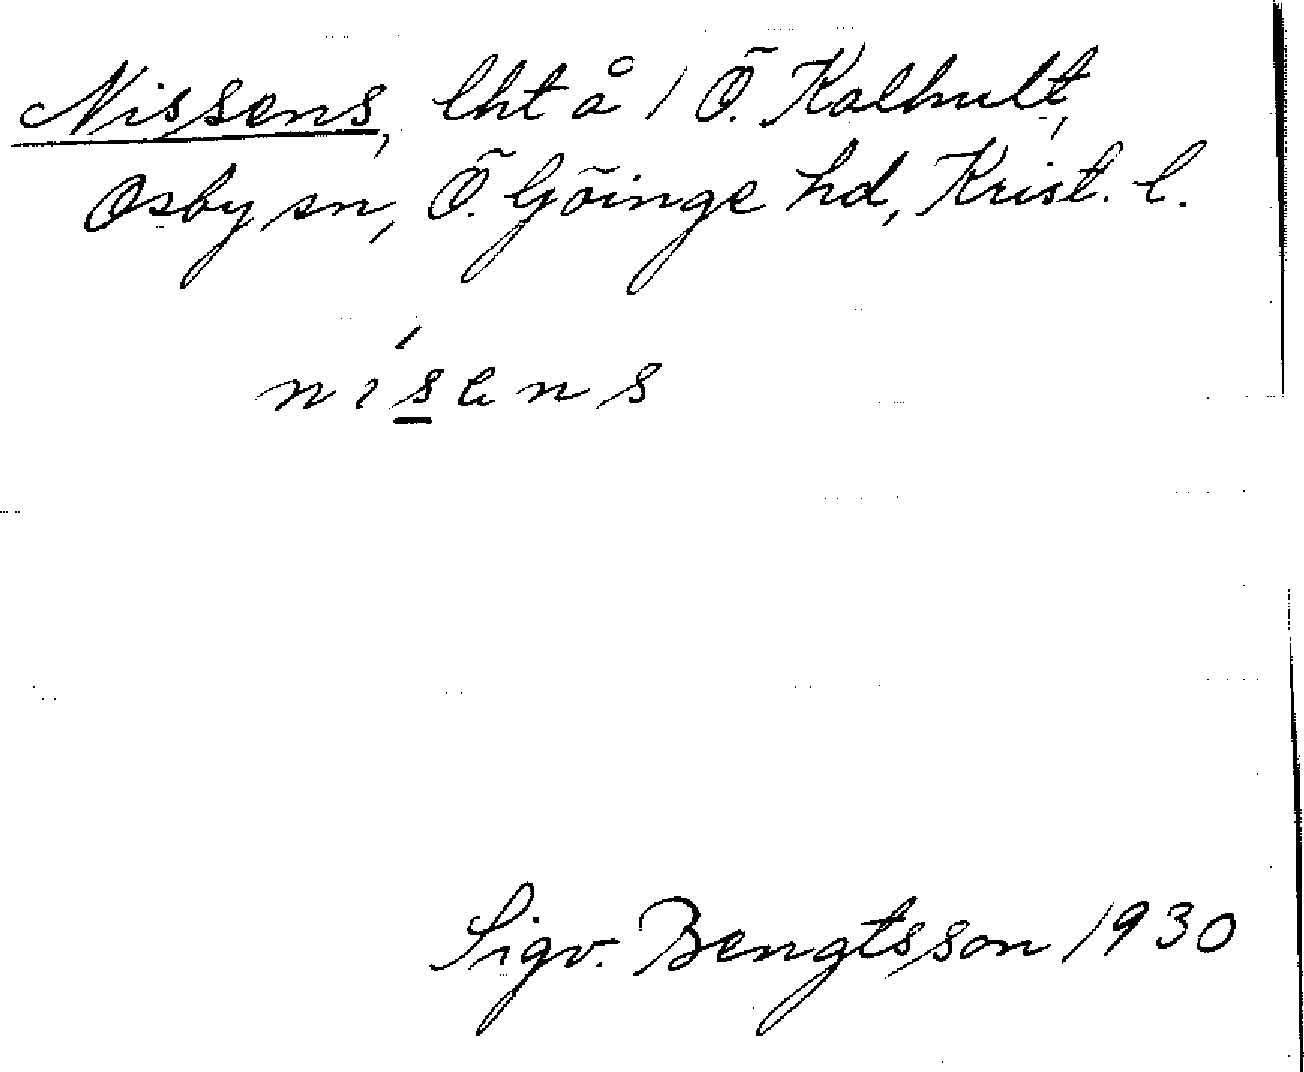 Nissens, lht å 1 Ö. Kalhult,
Osby sn, Ö. Göinge hd, Krist. l.
nís̲ens
Sigv. Bengtsson 1930